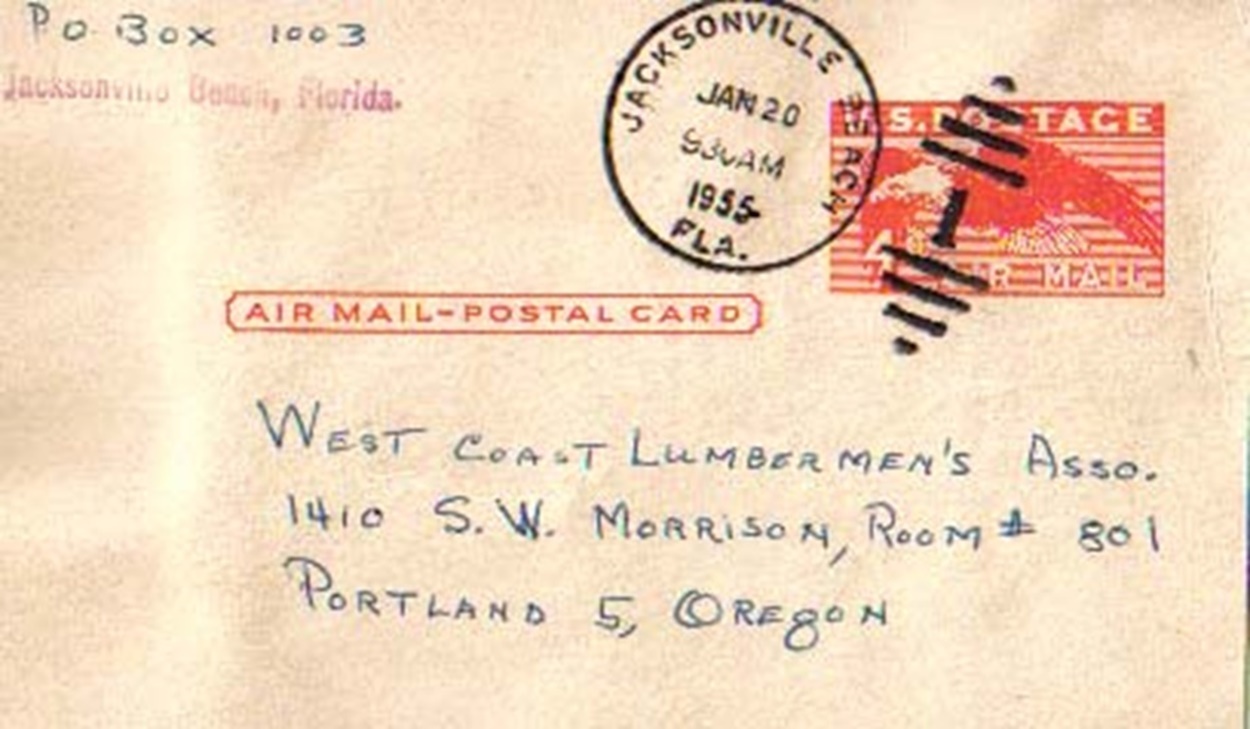 PO Box 1003
Jacksonville Beach, Florida.
JACKSONVILLE BEACH
JAN 20
930AM
1955
FLA.
U.S. POSTAGE
4¢ AIR MAIL
AIR MAIL-POSTAL CARD
WEST COAST LUMBERMEN'S ASSO.
1410 S.W. MORRISON, ROOM # 801
PORTLAND 5, OREGON